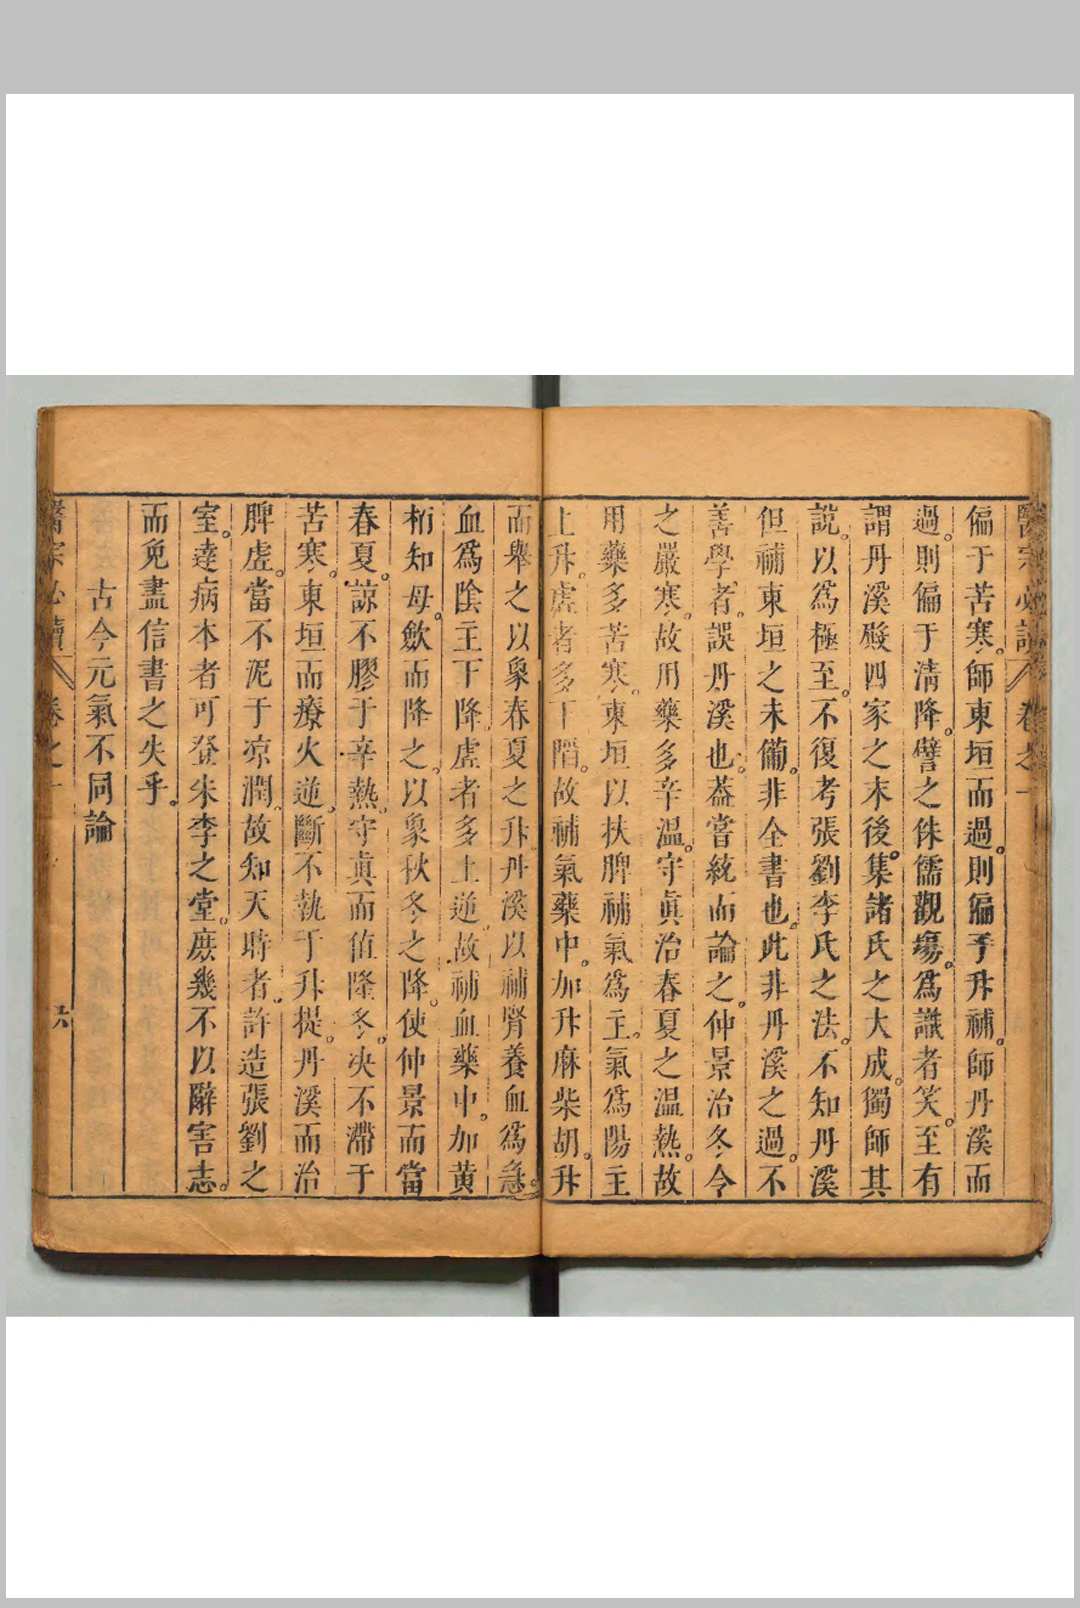 醫宗必讀 卷之一
偏于苦寒。師東垣而過。則偏于升補。師丹溪而
過。則偏于清降。譬之侏儒觀塲。爲識者笑。至有
謂丹溪殿四家之末後。集諸氏之大成。獨師其
說。以爲極至。不復考張劉李氏之法。不知丹溪
但補東垣之未備。非全書也。此非丹溪之過。不
善學者。誤丹溪也。葢嘗統而論之。仲景治冬令
之嚴寒。故用藥多辛温。守眞治春夏之温熱。故
用藥多苦寒。東垣以扶脾補氣爲主。氣爲陽主
上升。虛者多下陷。故補氣藥中。加升麻柴胡。升
而舉之以象春夏之升丹溪以補腎養血爲急。
血爲陰主下降。虛者多上逆。故補血藥中。加黄
栢知母。歛而降之。以象秋冬之降。使仲景而當
春夏。諒不膠于辛熱。守眞而值隆冬。决不滯于
苦寒。東垣而療火逆。斷不執于升提。丹溪而治
脾虛。當不泥于凉潤。故知天時者。許造張劉之
室。達病本者可登朱李之堂。庶幾不以辭害志。
而免盡信書之失乎。
古今元氣不同論
醫宗必讀 卷之一 六